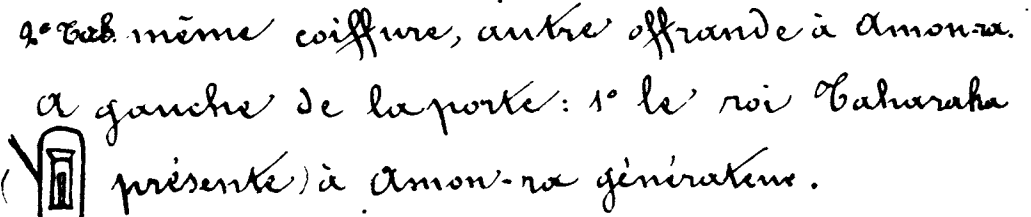 2º Tab. même coiffure, autre offrande à Amon-ra.
A gauche de la porte : 1º le roi Taharaka
( présente) à Amon-ra générateur.